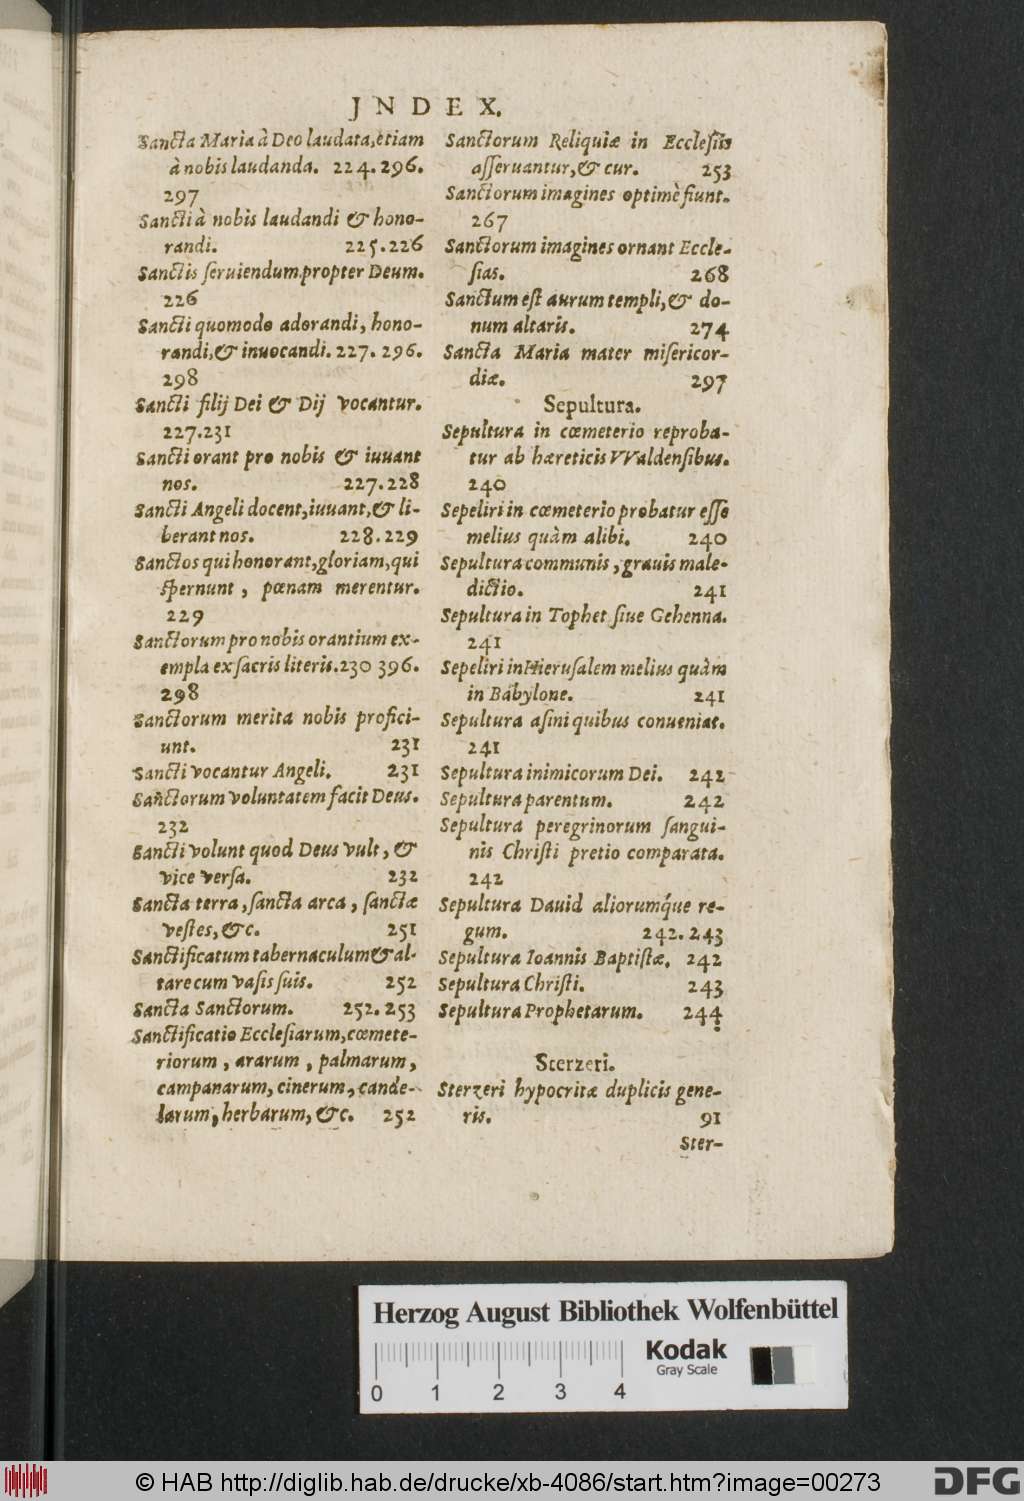 JNDEX.
Sancta Maria à Deo laudata, etiam
à nobis laudanda. 224. 296.
297
Sancti à nobis laudandi & hono-
randi. 225. 226
Sanctis ſeruiendum propter Deum.
226
Sancti quomodo adorandi, hono-
randi, & inuocandi. 227. 296.
298
Sancti filij Dei & Dij vocantur.
227. 231
Sancti orant pro nobis & iuuant
nos. 227. 228
Sancti Angeli docent, iuuant, & li-
berant nos. 228. 229
Sanctos qui honorant, gloriam, qui
ſpernunt, pœnam merentur.
229
Sanctorum pro nobis orantium ex-
empla ex ſacris literis. 230 396.
298
Sanctorum merita nobis profici-
unt. 231
Sancti vocantur Angeli. 231
Sanctorum voluntatem facit Deus.
232
Sancti volunt quod Deus vult, &
vice verſa. 232
Sancta terra, ſancta arca, ſanctæ
veſtes, &c. 251
Sanctificatum tabernaculum & al-
tare cum vaſis ſuis. 252
Sancta Sanctorum. 252. 253
Sanctificatio Eccleſiarum, cœmete-
riorum, ararum, palmarum,
campanarum, cinerum, cande-
larum, herbarum, &c. 252
Sanctorum Reliquiæ in Eccleſiis
aſſeruantur, & cur. 253
Sanctorum imagines optimè fiunt.
267
Sanctorum imagines ornant Eccle-
ſias. 268
Sanctum eſt aurum templi, & do-
num altaris. 274
Sancta Maria mater miſericor-
diæ. 297
Sepultura.
Sepultura in cœmeterio reproba-
tur ab hæreticis VValdenſibus.
240
Sepeliri in cœmeterio probatur eſſe
melius quàm alibi. 240
Sepultura communis, grauis male-
dictio. 241
Sepultura in Tophet ſiue Gehenna.
241
Sepeliri in Hieruſalem melius quàm
in Babylone. 241
Sepultura aſini quibus conueniat.
241
Sepultura inimicorum Dei. 242
Sepultura parentum. 242
Sepultura peregrinorum ſangui-
nis Chriſti pretio comparata.
242
Sepultura Dauid aliorumq́ue re-
gum. 242. 243
Sepultura Ioannis Baptiſtæ. 242
Sepultura Chriſti. 243
Sepultura Prophetarum. 244
Sterzeri.
Sterzeri hypocritæ duplicis gene-
ris. 91
Ster-
Herzog August Bibliothek Wolfenbüttel
Kodak
Gray Scale
0 1 2 3 4
© HAB http://diglib.hab.de/drucke/xb-4086/start.htm?image=00273
DFG